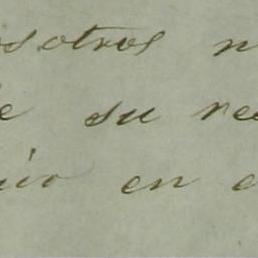 osotros n
e su re
en